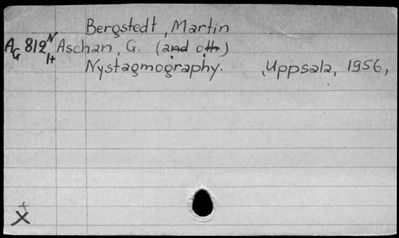 Bergstedt, Martin
AG 812 N Aschan, G. (and oth.)
It
Nystagmography. , Uppsala, 1956,
X